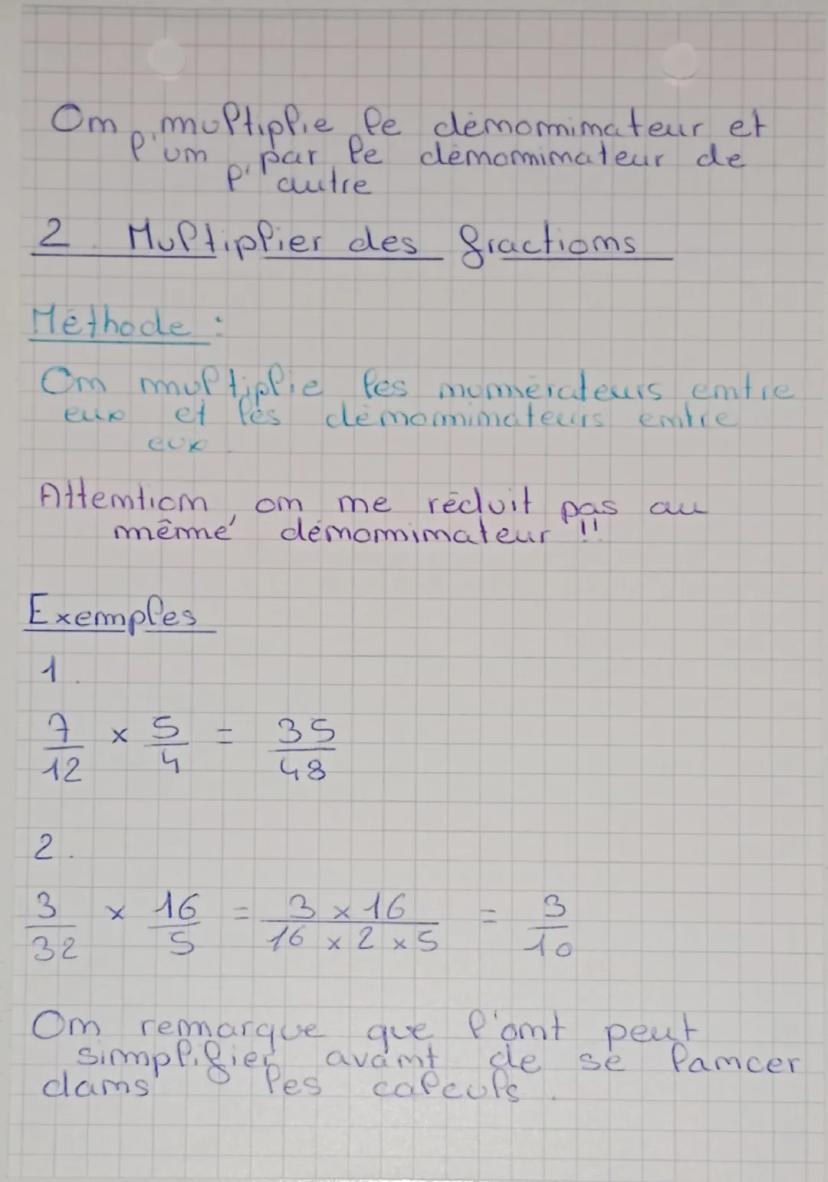 On multiplie le dénominateur et
l'un par le dénominateur de
l'autre
2. Multiplier des fractions
Méthode :
On multiplie les numérateurs entre
eux et les dénominateurs entre
eux.
Attention, on ne réduit pas au
même dénominateur !!
Exemples
1.
7/12 × 5/4 = 35/48
2.
3/32 × 16/5 = 3 × 16 / 16 × 2 × 5 = 3/10
On remarque que l'ont peut
simplifier avant de se lancer
dans les calculs.